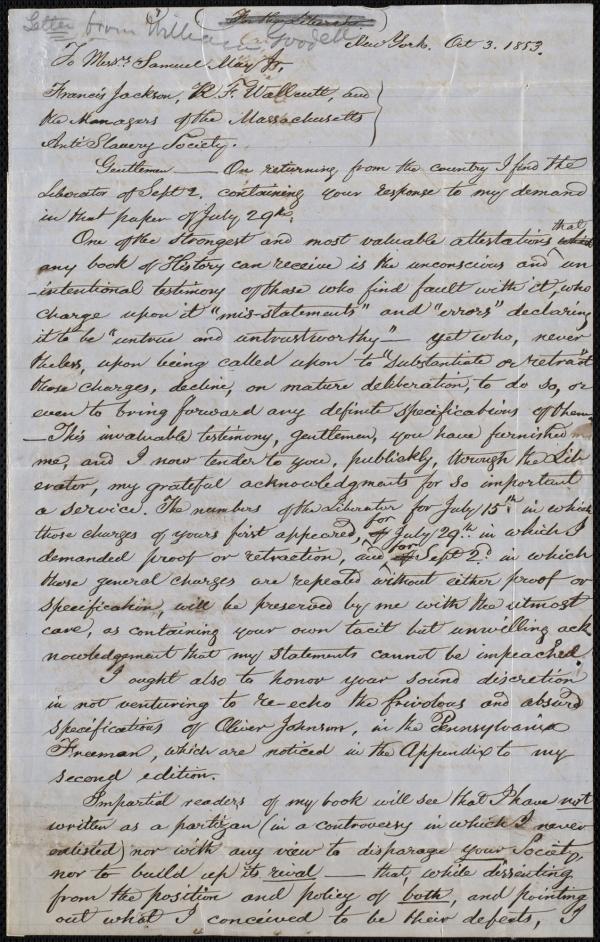 Letter from William Goodell
New York. Oct 3. 1853.
To Messrs Samuel May Jr,
Francis Jackson, R. F. Wallcutt, and
the Managers of the Massachusetts
Anti Slavery Society.
Gentlemen — On returning from the country I find the
Liberator of Sept 2. containing your response to my demand
in that paper of July 29th.
One of the strongest and most valuable attestations that
any book of History can receive is the unconscious and un
-intentional testimony of those who find fault with it, who
charge upon it "mis-statements" and "errors" declaring
it to be "untrue and untrustworthy" — yet who, never
theless, upon being called upon to "substantiate or retract"
those charges, decline, on mature deliberation, to do so, or
even to bring forward any definite specifications of them.
— This invaluable testimony, gentlemen, you have furnished
me, and I now tender to you, publickly, through the Lib
erator, my grateful acknowledgments for so important
a service. The numbers of the Liberator for July 15th in which
those charges of yours first appeared, for July 29th in which I
demanded proof or retraction, and for Sept 2d in which
these general charges are repeated without either proof or
specification, will be preserved by me with the utmost
care, as containing your own tacit but unwilling ack
nowledgement that my statements cannot be impeached.
I ought also to honor your sound discretion
in not venturing to re-echo the frivolous and absurd
specifications of Oliver Johnson, in the Pennsylvania
Freeman, which are noticed in the Appendix to my
second edition.
Impartial readers of my book will see that I have not
written as a partizan (in a controversy in which I never
enlisted) nor with any view to disparage your Society,
nor to build up its rival — that, while dissenting
from the position and policy of both, and pointing
out what I conceived to be their defects, I